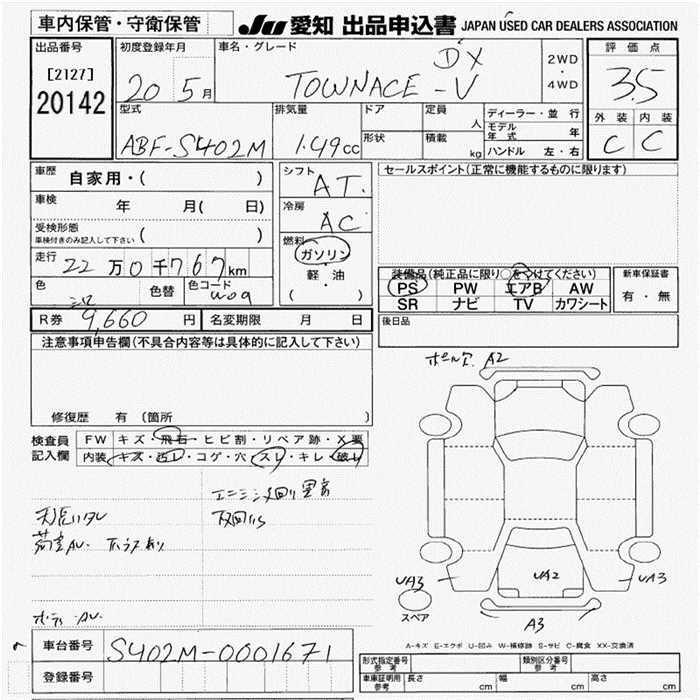 車内保管・守衛保管
JU 愛知 出品申込書 JAPAN USED CAR DEALERS ASSOCIATION
出品番号
[2127]
20142
初度登録年月
20 5月
車名・グレード
DX
TOWNACE - V
2WD
・
4WD
評価点
3.5
外装 内装
C C
型式
ABF-S402M
排気量
1.49cc
ドア
形状
定員
人
積載
kg
ディーラー・並行
モデル年式 年
ハンドル 左・右
車歴 自家用・( )
車検 年 月( 日)
受検形態
車検付きのみ記入して下さい ( )
走行 22万0千767km
色 シロ 色替 色コード W09
シフト AT.
冷房 AC
燃料 ガソリン
軽・油
( )
セールスポイント(正常に機能するものに限ります)
装備品(純正品に限り○をつけてください)
PS PW エアB AW
SR ナビ TV カワシート
新車保証書
有・無
R券 9,660 円 名変期限 月 日
後日品
注意事項申告欄(不具合内容等は具体的に記入して下さい)
修復歴 有 〔箇所
検査員記入欄
FW キズ・飛石・ヒビ割・リペア跡・X要
内装 キズ・汚レ・コゲ・穴・スレ・キレ・破レ
A2
UA2
UA3
UA3
A3
スペア
A-キズ E-エクボ U-凹み W-補修跡 S-サビ C-腐食 XX-交換済
車台番号 S402M-0001671
登録番号
形式指定番号 参考
類別区分番号 参考
車庫証明用 参考 長さ cm 幅 cm 高さ cm